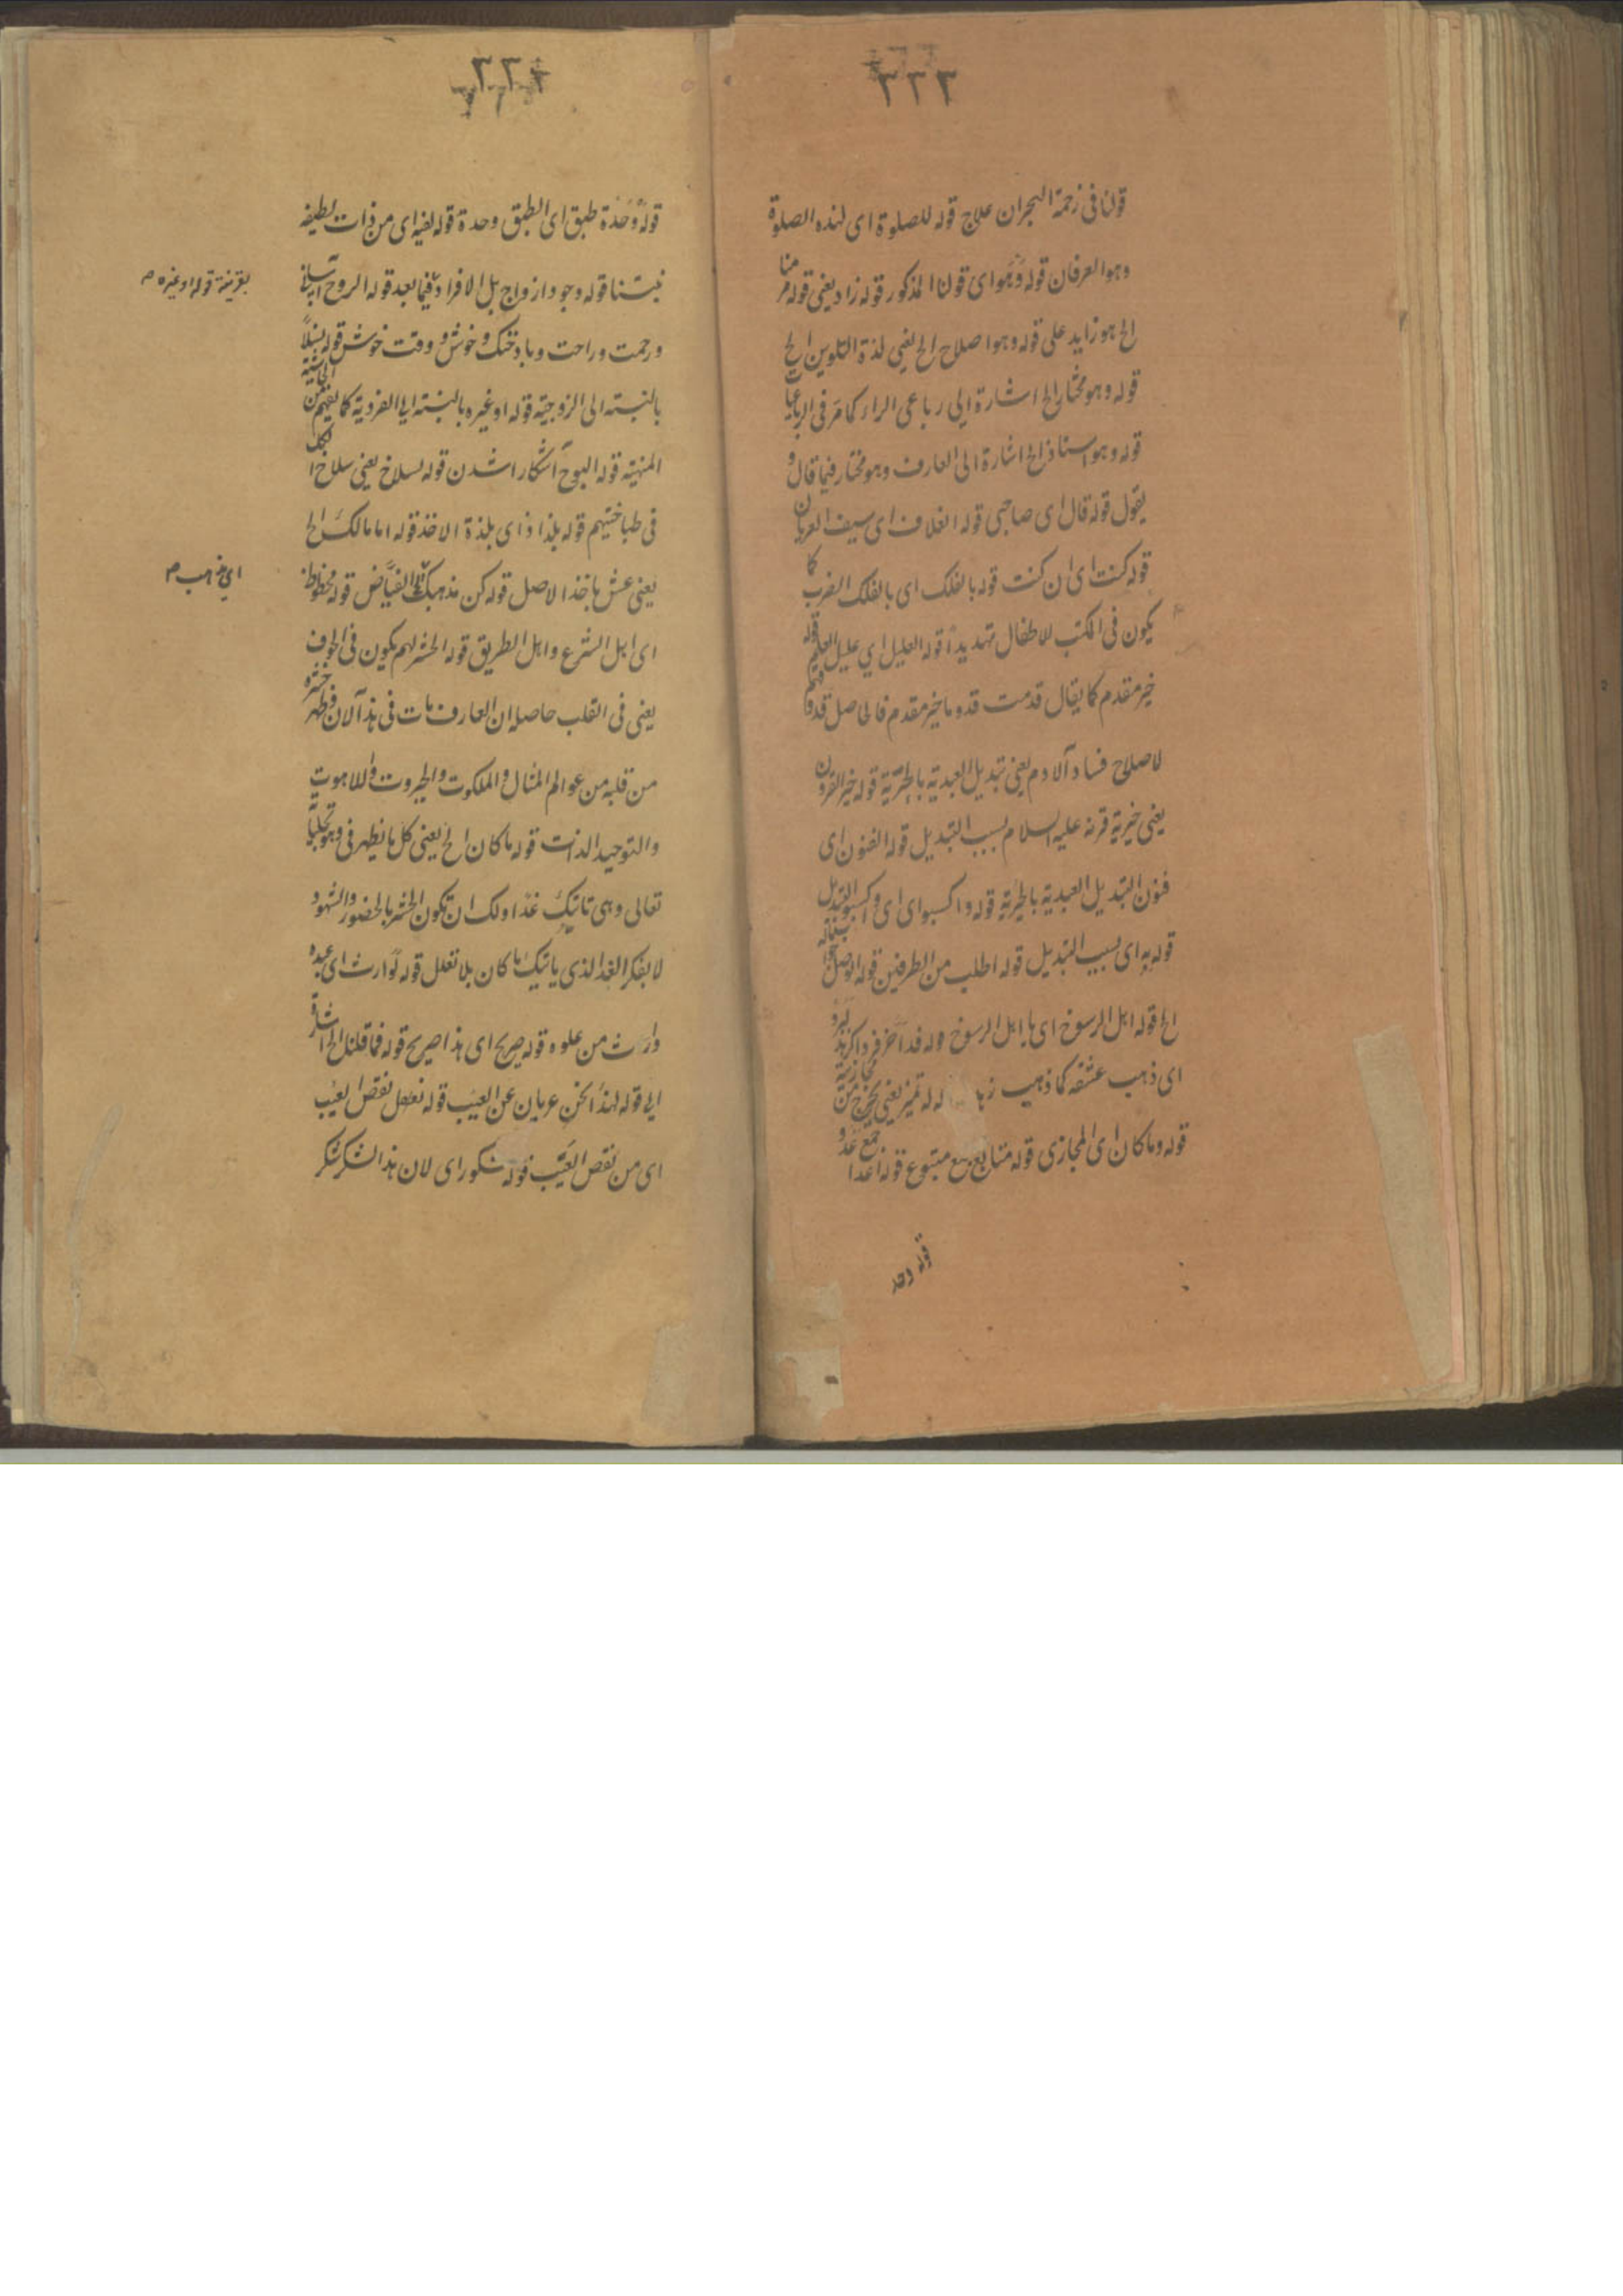 ٣٢٣
قولنا فى زحمة الهجران علاج قوله للصلوة اى لهذه الصلوة
وهو العرفان قوله وهو اى قولنا المذكور قوله زاد يعنى قوله منا
الخ هو زايد على قوله وهو اصلاح الخ يعنى لذة التلوين الخ
قوله وهو مختار الخ اشارة الى رباعى الرار كما مر فى الرباعيات
قوله وهو استاذ الخ اشارة الى العارف وهو مختار فيما قال و
يقول قوله قال اى صاحبى قوله الغلاف اى سيف العريان
قوله كنت اى ان كنت قوله بالفلك اى بالفلك الضرب كما
يكون فى المكتب للاطفال تهديدا قوله العليل اى عليل العليم قوله
خير مقدم كما يقال قدمت قدوما خير مقدم فالحاصل قدوم
لاصلاح فساد آلادم يعنى تبديل العبدية بالحرية قوله خير القرون
يعنى خيرية قرنه عليه السلام بسبب التبديل قوله الفنون اى
فنون التبديل العبدية بالحرية قوله واكسبوا اى اى واكسبوا التبديل
قوله به اى بسبب التبديل قوله اطلب من الطرفين قوله الوصل
الخ قوله اهل الرسوخ اى يا اهل الرسوخ وله فدا آخر فرد اكر
اى ذهب عشقه كما ذهب له له تميز يعنى يخرج من مجازية
قوله وما كان اى المجازى قوله متابع متبوع قوله اعدا جمع عدو
قوله وحد
٣٢٤
قوله وحدة طبق اى الطبق وحدة قوله لفيه اى من ذات لطيفه
نبتنا قوله وجود ازواج بل الافراد فيما بعد قوله الروح آسانى
ورحمت وراحت وباد خنك وخوش و وقت خوش قوله نسلا
بالنسبته الى الزوجية قوله او غيره بالنسبته الى الفردية كما يفهم من الحاشية
المنهية قوله البوح آشكارا شدن قوله سلاخ يعنى سلاخ الكل
فى طباختهم قوله بلذا ذاى بلذة الاخذ قوله اما مالك الخ
يعنى عش باخذ الاصل قوله كن مذهبك الى الفياض قوله محظوظ
اى اهل الشرع واهل الطريق قوله الحشر لهم يكون فى الجوف
يعنى فى القلب حاصله ان العارف مات فى هذا آلان وظهر حشره
من قلبه من عوالم المثال والملكوت والجبروت واللاهوت
والتوحيد الذات قوله ما كان الخ يعنى كل ما يظهر فى وهو تجليا
تعالى وهى تاتيك غدا ولك ان تكون الحشر بالحضور والشهود
لا بفكر الغد الذى ياتيك ما كان بلا تعلل قوله توارث اى عبده
وارث من علوه قوله صريح اى هذا صريح قوله فما قلنا الخ اشارة
الى قوله لهذا نحن عريان عن العيب قوله نعقل نقص العيب
اى من نقص العيب قوله شكور اى لان هذا الشكر شكر
بقرينة قوله او غيره م
اى مذهب م